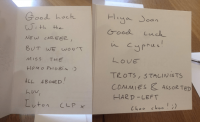 Good Luck
With the
NEW CAREER,
BUT WE WON'T
MISS THE
MEGAPHONE!
ALL ABOARD!
LUV,
CLP x
Hiya Joan
Good Luck
in Cyprus!
LOVE
TROTS, STALINISTS
COMMIES & ASSORTED
HARD-LEFT